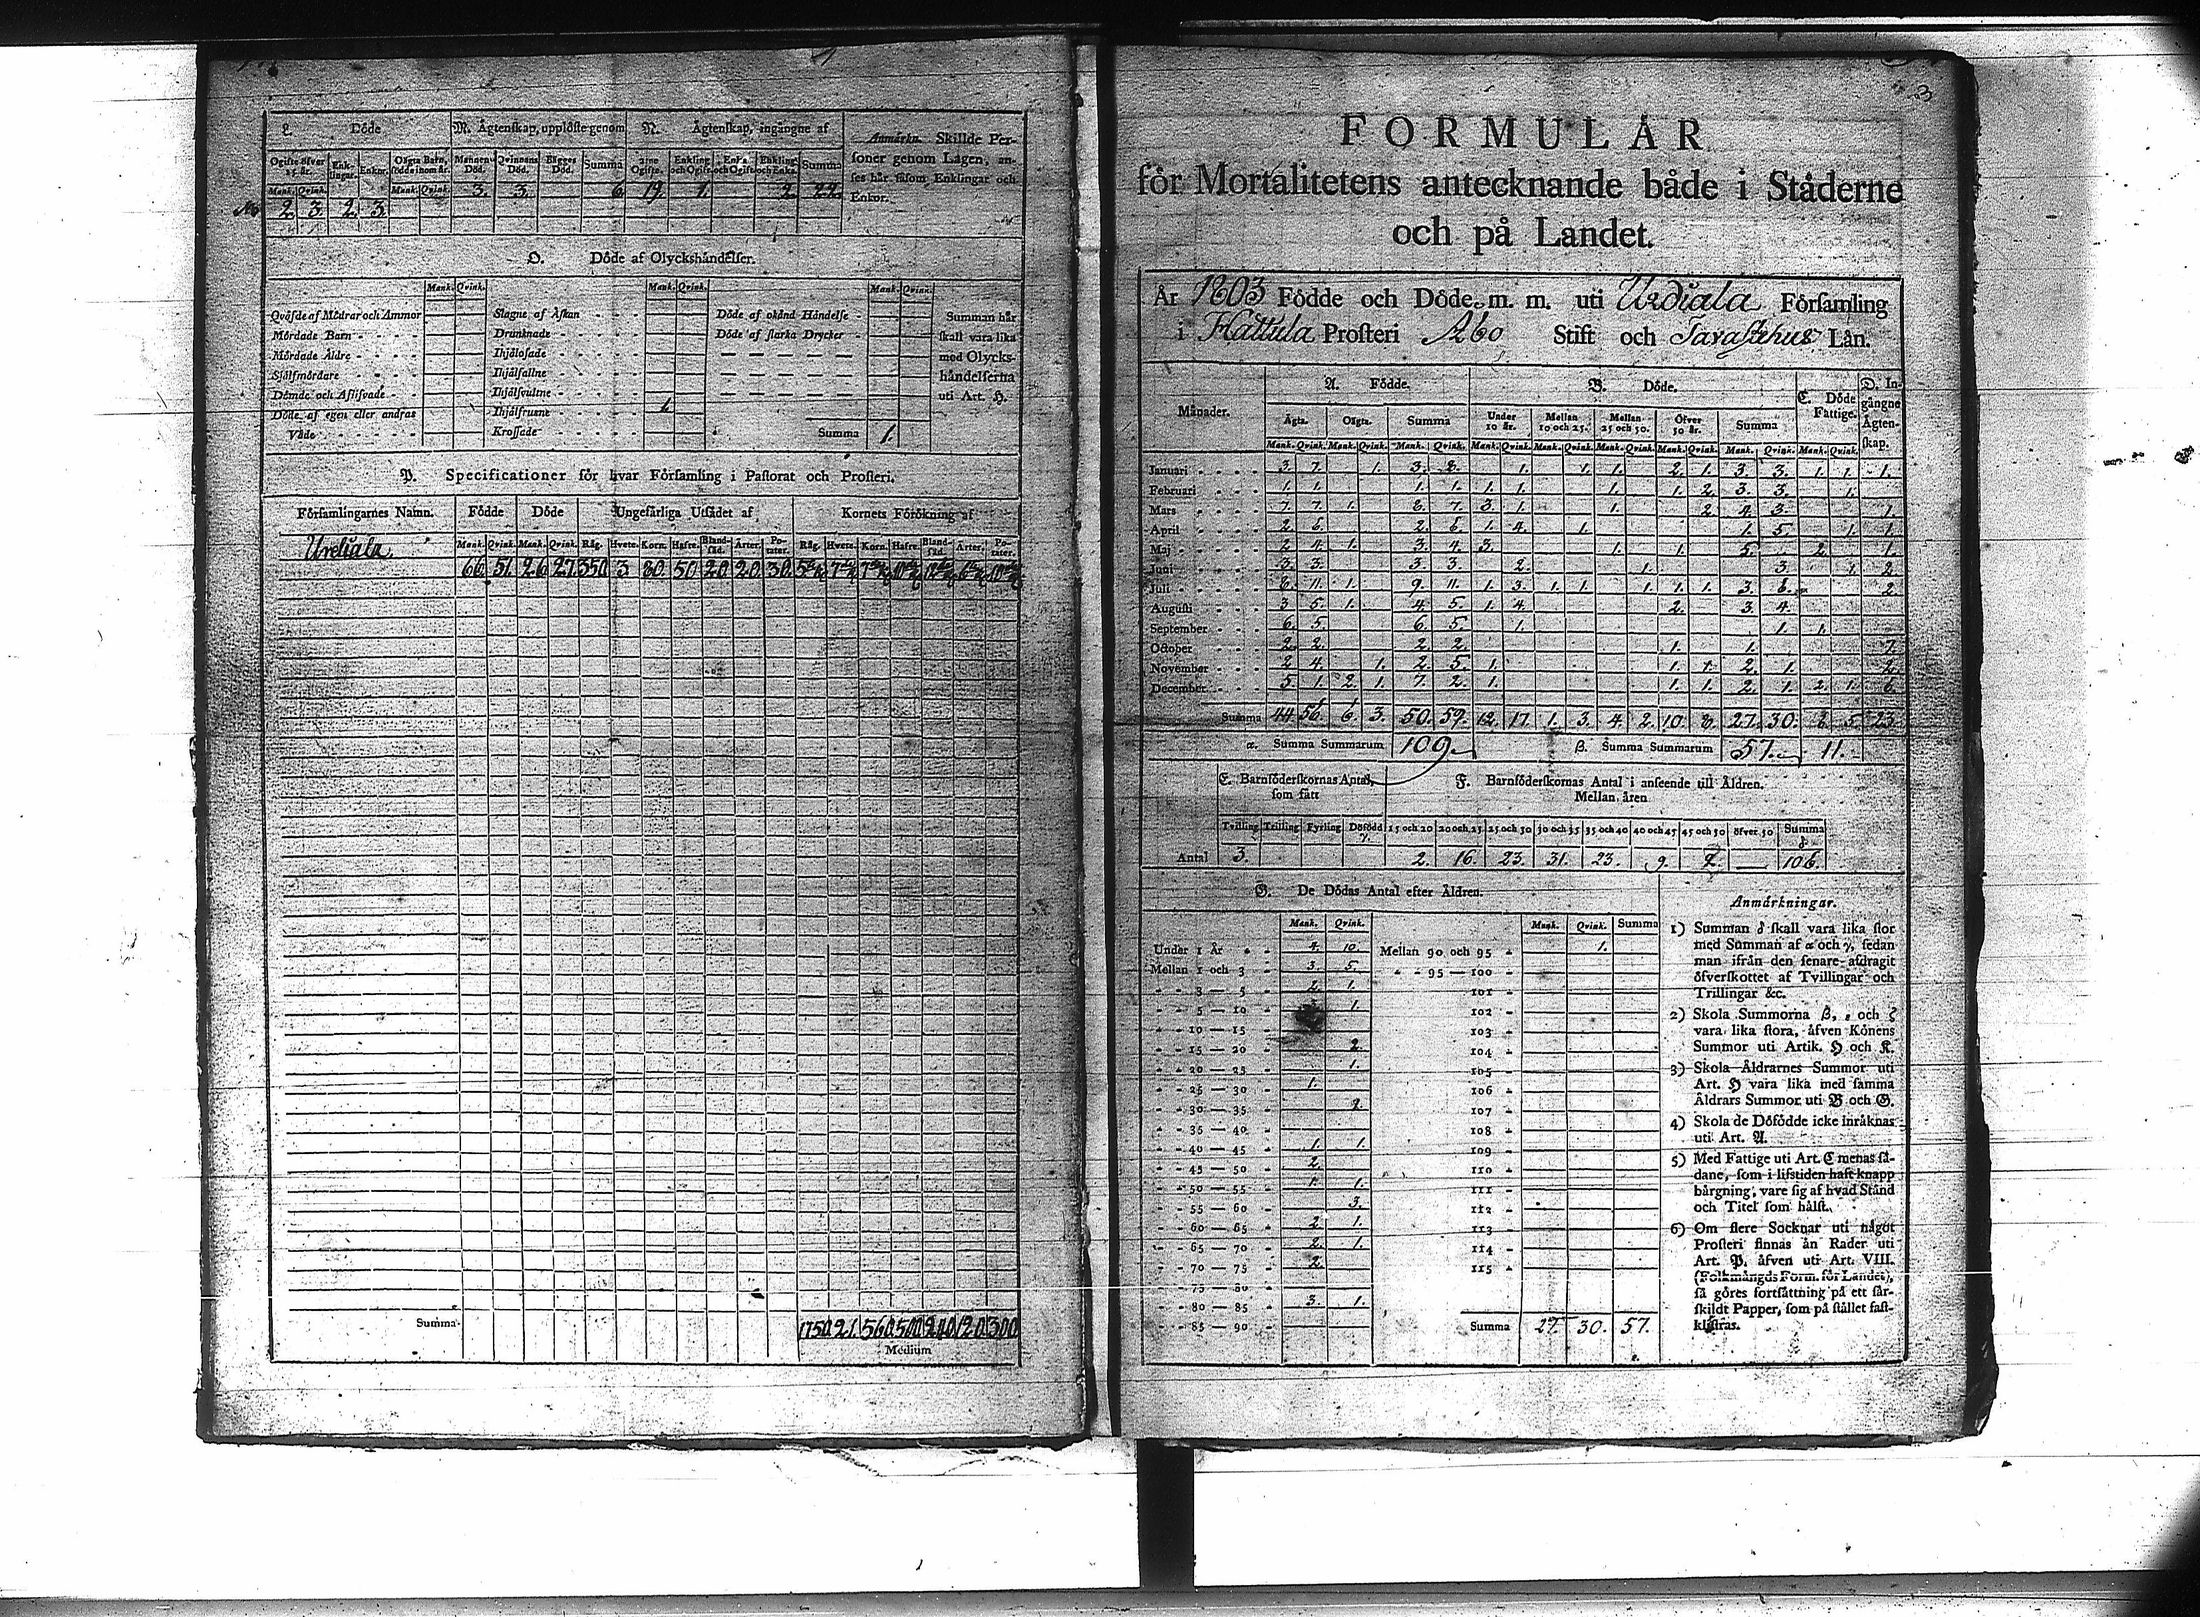 L. Döde
M. Ägtenskap, upplöste genom
N. Ägtenskap, ingångne af
Anmärkn. Skillde Per-
soner genom Lagen, an-
ses här såsom Enklingar och
Enkor.
Ogifte öfver 15 år. Enk-lingar. Enkor. Oägta Barn, födde inom år.
Mannens Död. Qvinnans Död. Bägges Död. Summa
Enkling och Ogift. Enka och Ogift. Enkling och Enka. Summa
Mank. Qvink. Mank. Qvink.
3. 3. 6. 19. 1. 2. 22.
2. 3. 2. 3.
O. Döde af Olyckshändelser.
Mank. Qvink. Mank. Qvink. Mank. Qvink.
Qväfde af Mödrar och Ammor
Mördade Barn
Mördade Äldre
Självmördare
Dömde och Aflifvade
Döde af egen eller andras
Våde
Slagne af Åskan
Drunknade
Ihjälfallne
Ihjälsvultne
Ihjälfrusne 1.
Krossade
Döde af okänd Händelse
Döde af starka Drycker
Summa 1.
Summan här
skall vara lika
med Olycks-
händelserna
uti Art. H.
P. Specificationer för hvar Församling i Pastorat och Prosteri.
Församlingarnes Namn. Födde Döde Ungefärliga Utsädet af Kornets Förökning af
Mank. Qvink. Mank. Qvink. Råg. Hvete. Korn. Hafre. Bland-säd. Ärter. Po-tater. Råg. Hvete. Korn. Hafre. Bland-säd. Ärter. Po-tater.
Urdiala 66. 51. 26. 27. 350. 3. 80. 50. 20. 20. 30.
Summa 1750. 21. 560. 500. 240. 120. 300.
Medium
3
FORMULÄR
för Mortalitetens antecknande både i Städerne
och på Landet.
År 1803 Födde och Döde m. m. uti Urdiala Församling
i Hattula Prosteri Abo Stift och Tavastehus Län.
Månader. A. Födde. B. Döde. C. Döde Fattige. D. In-gångne Ägten-skap.
Ägta. Oägta. Summa Under 10 år. Mellan 10 och 25. Mellan 25 och 50. Öfver 50 år. Summa
Mank. Qvink. Mank. Qvink. Mank. Qvink. Mank. Qvink. Mank. Qvink. Mank. Qvink. Mank. Qvink. Mank. Qvink. Mank. Qvink.
Januari 3. 7. 1. 3. 8. 1. 1. 1. 2. 1. 3. 3. 1. 1. 1.
Februari 1. 1. 1. 1. 1. 1. 1. 1. 2. 3. 3. 1.
Mars 7. 7. 1. 8. 7. 3. 1. 1. 2. 4. 3. 1.
April 2. 6. 2. 6. 1. 4. 1. 1. 5. 1. 1.
Maj 2. 4. 1. 3. 4. 3. 1. 1. 5. 2. 1.
Juni 3. 3. 3. 3. 2. 1. 3. 1. 2.
Juli 11. 1. 9. 11. 1. 3. 1. 1. 1. 1. 1. 3. 6. 2.
Augusti 3. 5. 1. 4. 5. 1. 4. 2. 3. 4.
September 6. 5. 6. 5. 1. 1. 1.
October 2. 2. 2. 2. 1. 1. 7.
November 2. 4. 1. 2. 5. 1. 1. 1. 2. 1. 2.
December 5. 1. 2. 1. 7. 2. 1. 1. 1. 2. 1. 2. 1. 6.
Summa 44. 56. 6. 3. 50. 59. 12. 17. 1. 3. 4. 2. 10. 8. 27. 30. 5. 23.
α. Summa Summarum 109. β. Summa Summarum 57. 11.
E. Barnföderskornas Antal, som fått
F. Barnföderskornas Antal i anseende till Åldren.
Mellan åren
Tvilling Trilling Fyrling Döfödd 15 och 20 20 och 25 25 och 30 30 och 35 35 och 40 40 och 45 45 och 50 öfver 50 Summa
Antal 3. 2. 16. 23. 31. 23. 9. 2. — 106.
G. De Dödas Antal efter Åldren.
Mank. Qvink. Mank. Qvink. Summa
Under 1 År 4. 10. Mellan 90 och 95 1.
Mellan 1 och 3 3. 5. 95 — 100
3 — 5 2. 1. 101
5 — 10 1. 102
10 — 15 103
15 — 20 2. 104
20 — 25 1. 105
25 — 30 1. 106
30 — 35 2. 107
35 — 40 108
40 — 45 1. 1. 109
45 — 50 2. 110
50 — 55 1. 1. 111
55 — 60 3. 112
60 — 65 2. 1. 113
65 — 70 2. 1. 114
70 — 75 2. 115
75 — 80
80 — 85 3. 1.
85 — 90 Summa 27. 30. 57.
Anmärkningar.
1) Summan δ skall vara lika stor
med Summan af α och γ, sedan
man ifrån den senare afdragit
öfverskottet af Tvillingar och
Trillingar &c.
2) Skola Summorna β, ε och ζ
vara lika stora, äfven Könens
Summor uti Artik. H och K.
3) Skola Åldrarnes Summor uti
Art. H vara lika med samma
Åldrars Summor uti B och G.
4) Skola de Döfödde icke inräknas
uti Art. A.
5) Med Fattige uti Art. C menas så-
dane, som i lifstiden haft knapp
bärgning, vare sig af hvad Stånd
och Titel som hälst.
6) Om flere Socknar uti något
Prosteri finnas än Rader uti
Art. P. äfven uti Art. VIII.
(Folkmängds Form. för Landet),
så göres fortsättning på ett sär-
skildt Papper, som på stället fast-
klistras.